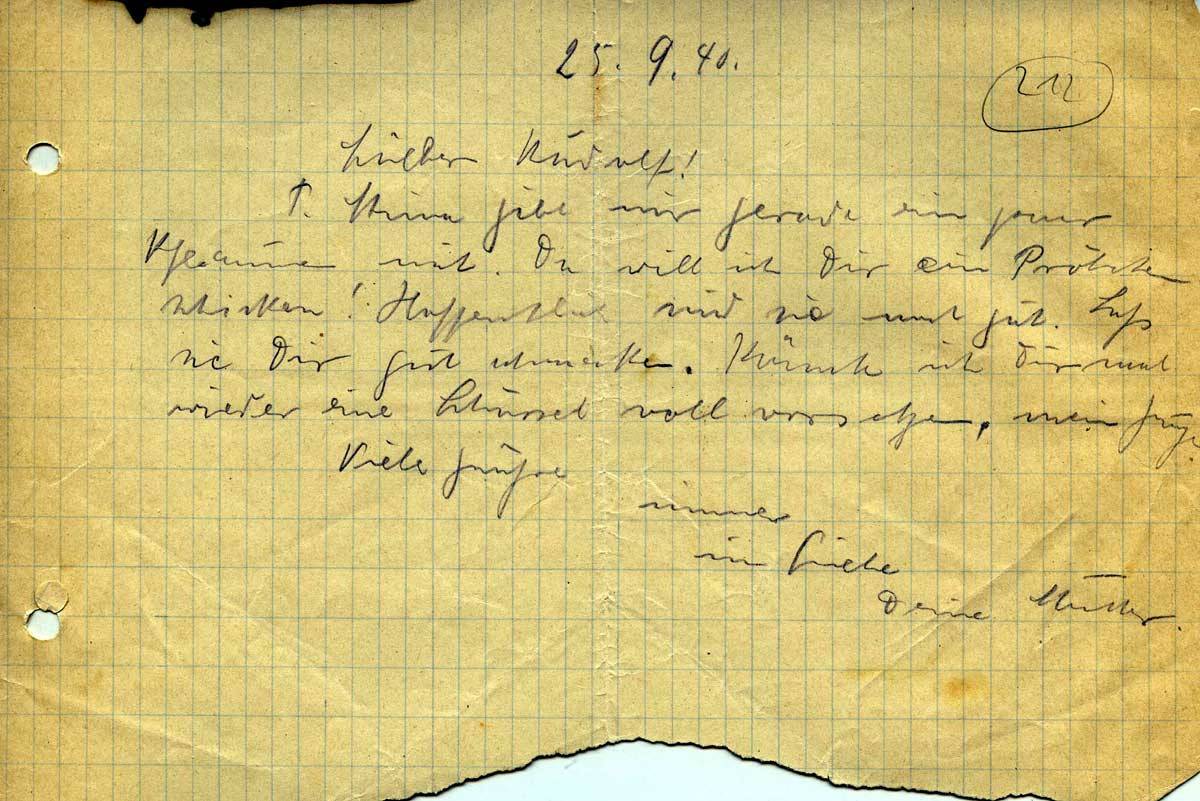 25. 9. 40.
212
Lieber Rudolf!
T. Mina gibt mir gerade ein paar
Pflaumen mit. Da will ich Dir ein Pröbchen
schicken! Hoffentlich sind sie noch gut. Laß
sie Dir gut schmecken. Könnte ich Dir mal
wieder eine Schüssel voll vorsetzen, mein Junge.
Viele Grüße
immer
in Liebe
Deine Mutter.